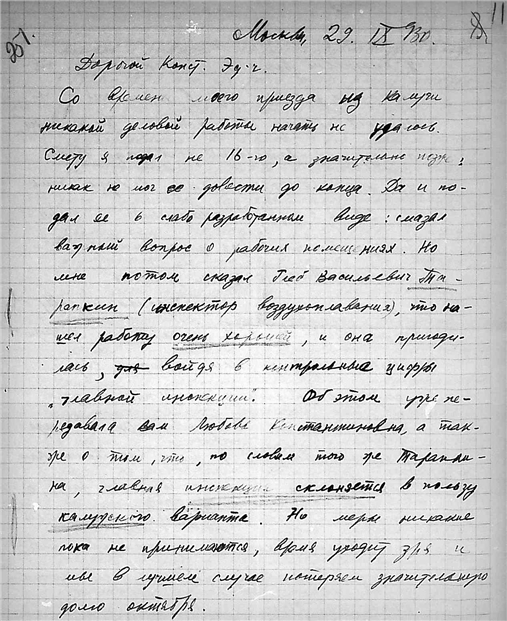 251.
11
Москва, 29. IX 930.
Дорогой Конст. Эд-ч.
Со времени моего приезда из Калуги
никакой деловой работы начать не удалось.
Смету я подал не 16-го, а значительно позже;
никак не мог ее довести до конца. Да и по-
дал ее в слабо разработанном виде: смазал
важный вопрос о рабочих помещениях. Но
мне потом сказал Глеб Васильевич Та-
рапкин (инспектор воздухоплавания), что на-
шел работу очень хорошей, и она пригоди-
лась, войдя в контрольные цифры
"главной инспекции". Об этом уже пе-
редавала вам Любовь Константиновна, а так-
же о том, что, по словам того же Тарапки-
на, главная инспекция склоняется в пользу
калужского варианта. Но меры никакие
пока не принимаются, время уходит зря и
мы в лучшем случае потеряем значительную
долю октября.